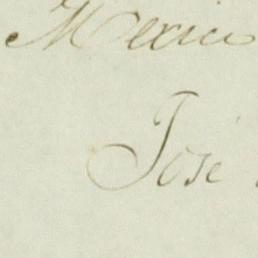 Mexico
José